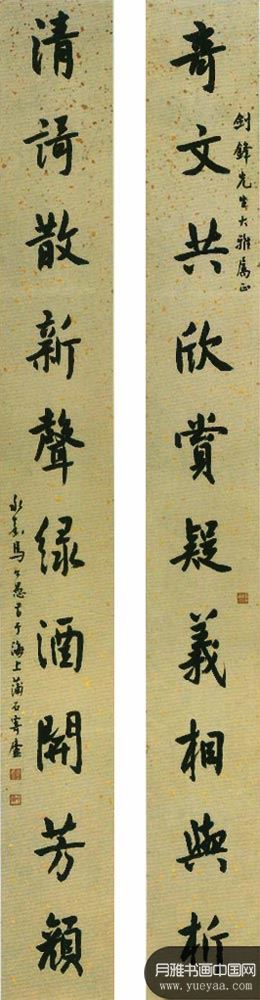 奇文共欣賞疑義相與析
劍鋒先生大雅屬正
清謌散新聲緑酒開芳顔
永嘉馬公愚書于海上蒲石寄廬
月雅书画中国网
www.yueyaa.com